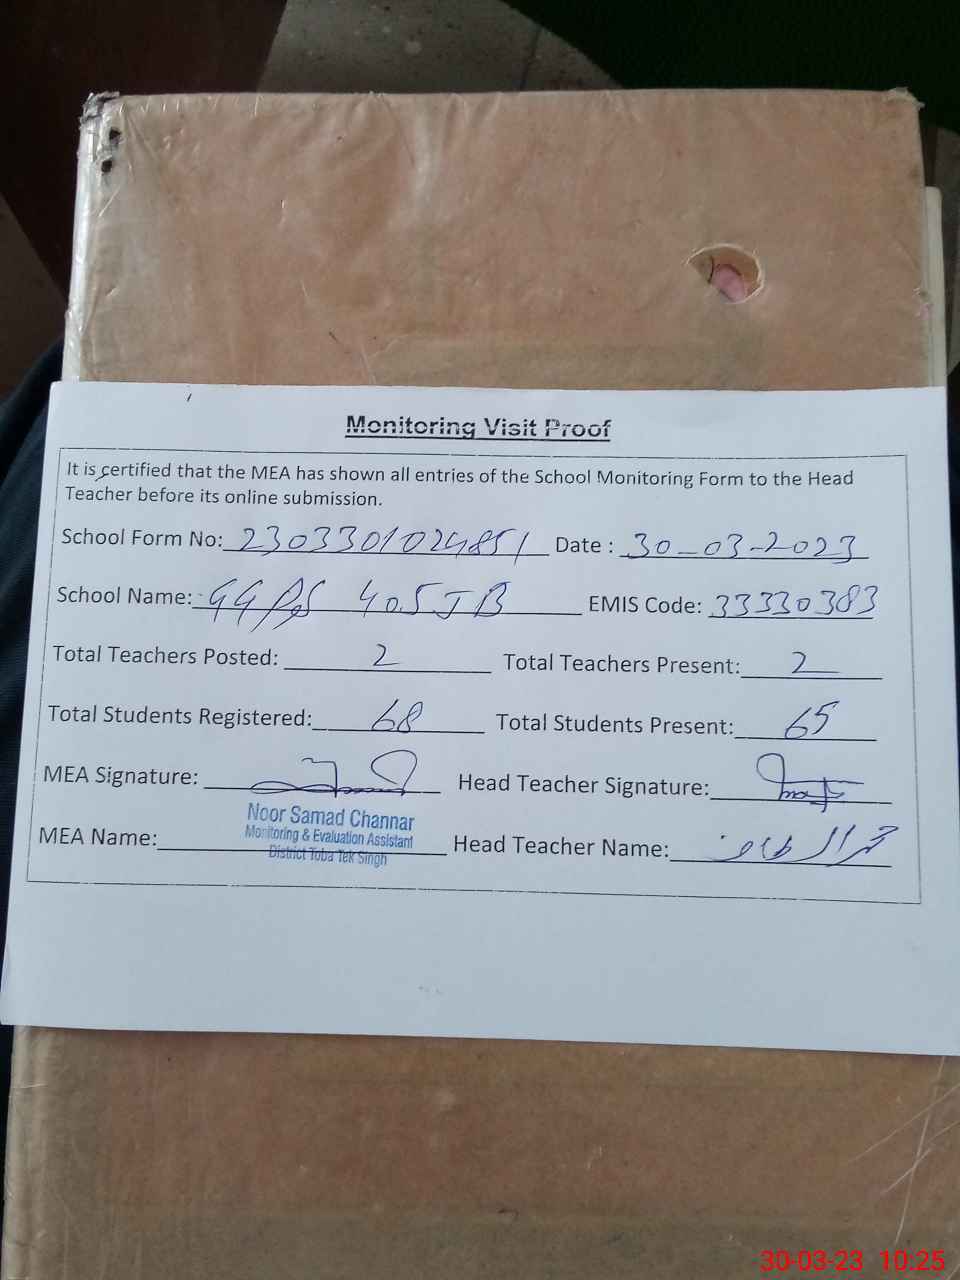 Monitoring Visit Proof
It is certified that the MEA has shown all entries of the School Monitoring Form to the Head
Teacher before its online submission.
School Form No: 2303301024851 Date : 30-03-2023
School Name: GGPS 405 JB EMIS Code: 33330383
Total Teachers Posted: 2 Total Teachers Present: 2
Total Students Registered: 68 Total Students Present: 65
MEA Signature: Head Teacher Signature:
Noor Samad Channar
Monitoring & Evaluation Assistant
District Toba Tek Singh
MEA Name: Head Teacher Name:
30-03-23 10:25